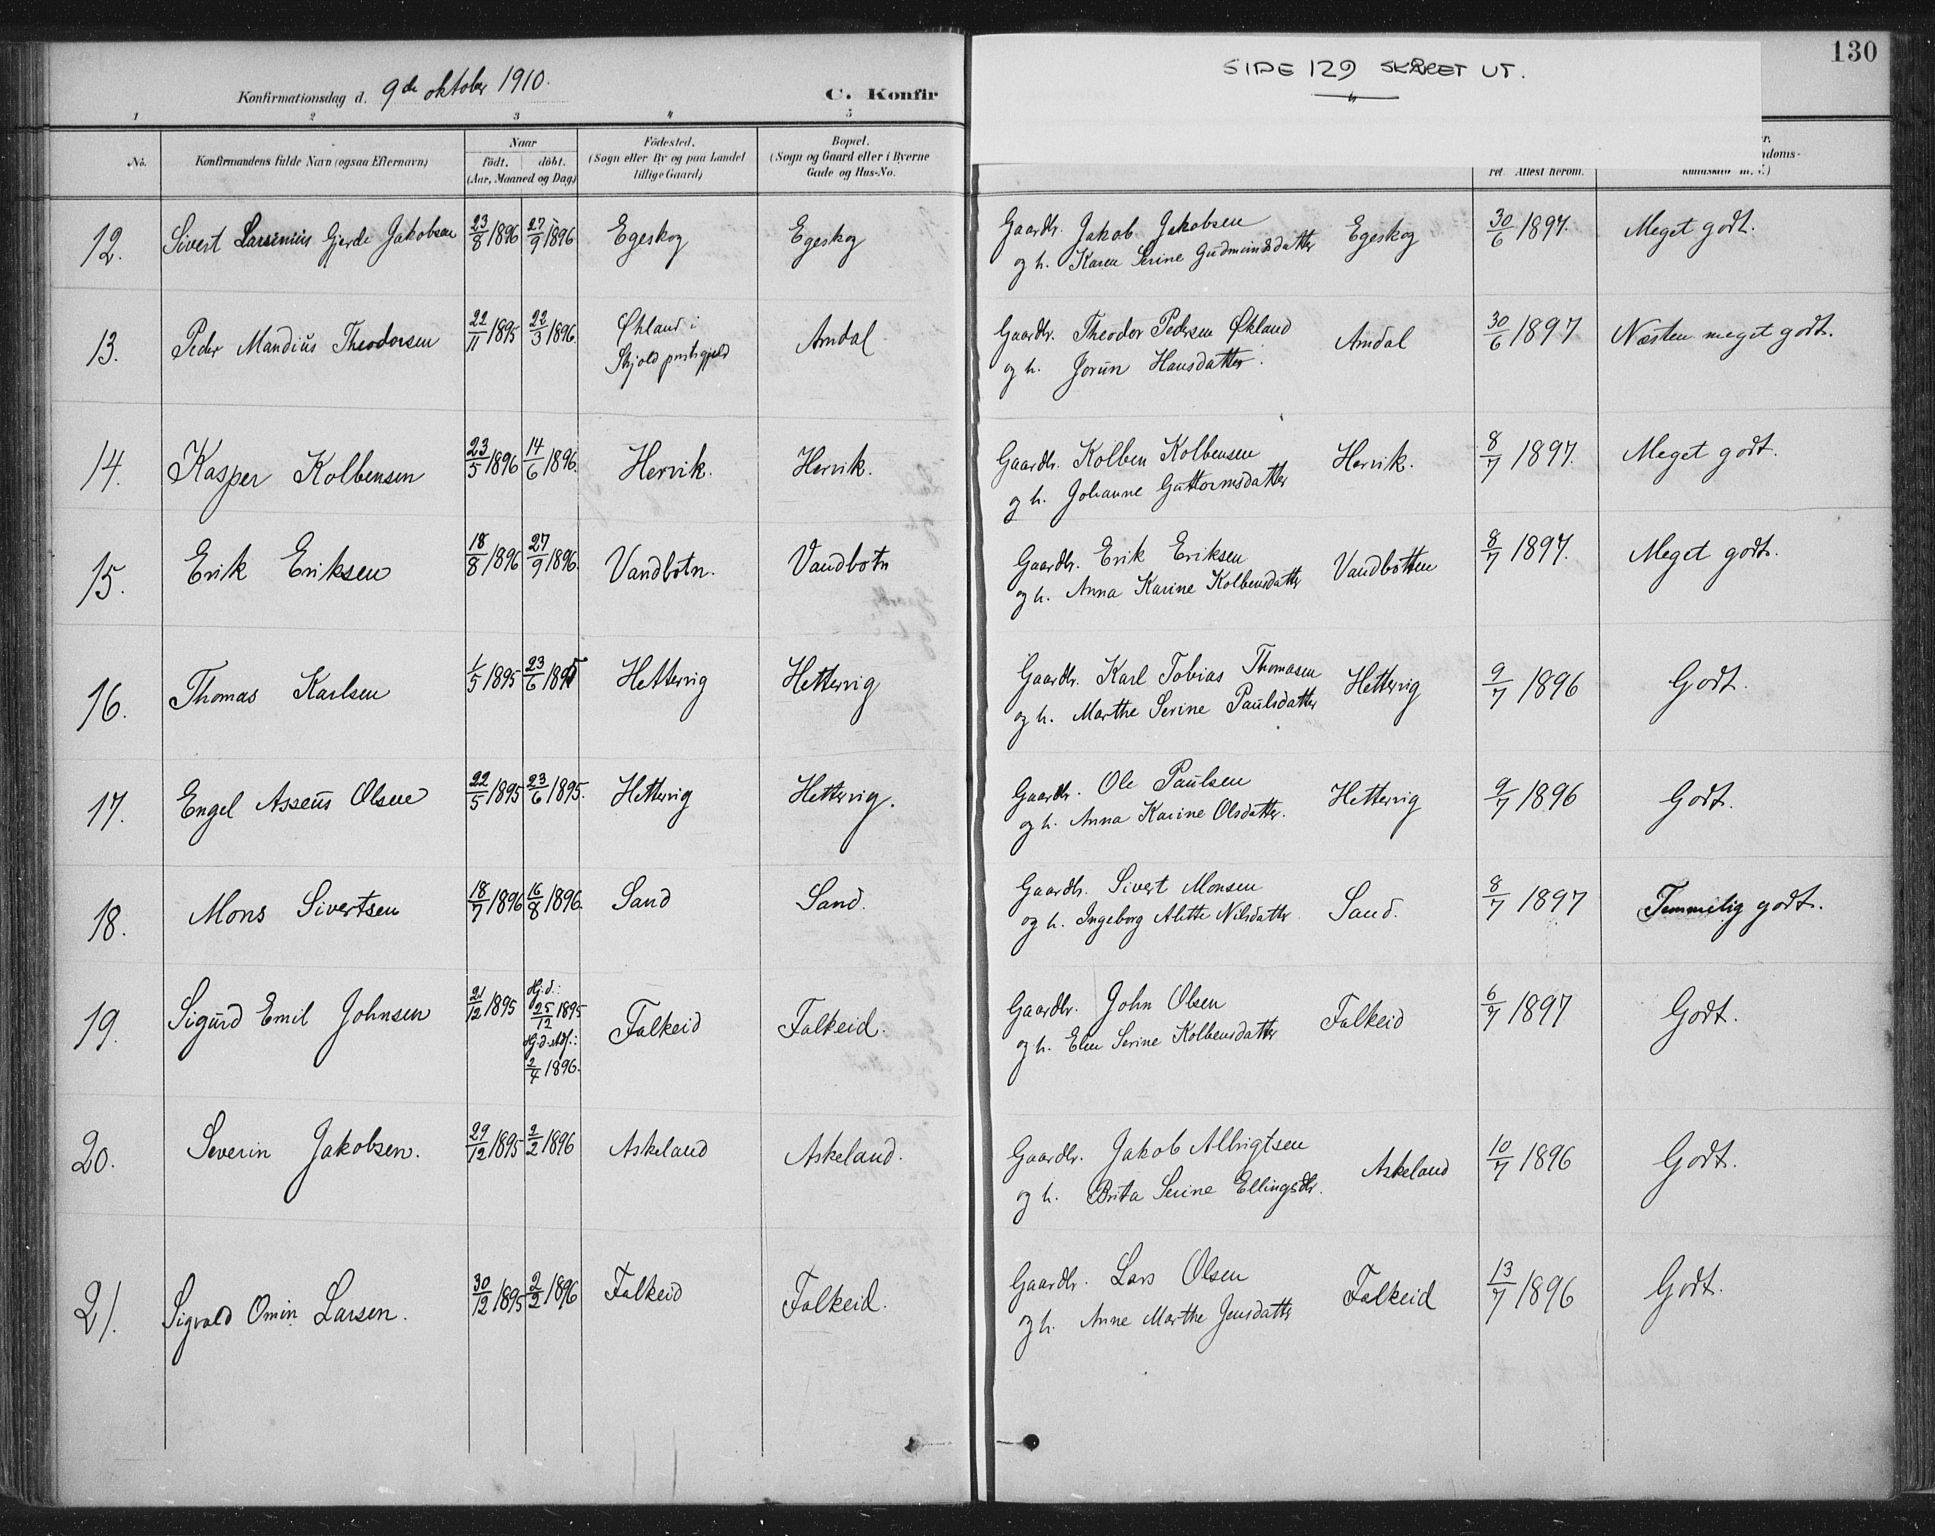 Konfirmationsdag d. 9de oktober 1910.
C. Konfir
SIDE 129 SKÅRET UT.
130
1 2 3 4 5
No.
Konfirmandens fulde Navn (ogsaa Efternavn)
Naar
födt. döbt.
(Aar, Maaned og Dag)
Födested.
(Sogn eller By og paa Landet
tillige Gaard)
Bopæl.
(Sogn og Gaard eller i Byerne
Gade og Hus-No.
ret Attest herom.
ndoms-
12. Sivert Larsenius Gjerde Jakobsen 23/8 1896 27/9 1896 Egeskog Egeskog Gaardbr. Jakob Jakobsen Egeskog 30/6 1897. Meget godt.
og h. Karen Serine Gudmundsdatter
13. Peder Mandius Theodorsen 22/11 1895 22/3 1896. Økland i Amdal Gaardbr. Theodor Pedersen Økland Amdal 30/6 1897 Næsten meget godt.
Skjold prestegjeld og h. Jorun Hansdatter.
14. Kasper Kolbensen 23/5 1896 14/6 1896. Hervik. Hervik. Gaardbr. Kolben Kolbensen Hervik. 8/7 1897. Meget godt.
og h. Johanne Guttormsdatter
15. Erik Eriksen 18/8 1896 27/9 1896. Vandbotn. Vandbotn Gaardbr. Erik Eriksen Vandbotten 8/7 1897. Meget godt.
og h. Anna Karine Kolbensdatter
16. Thomas Karlsen 1/5 1895 23/6 1895 Hettervig Hettervig Gaardbr. Karl Tobias Thomasen Hettervig 9/7 1896 Godt.
og h. Marthe Serine Paulsdatter
17. Engel Asseus Olsen 22/5 1895 23/6 1895. Hettervig Hettervig. Gaardbr. Ole Paulsen Hettervig 9/7 1896 Godt.
og h. Anna Karine Olsdatter.
18. Mons Sivertsen 18/7 1896 16/8 1896. Sand Sand. Gaardbr. Sivert Monsen Sand. 8/7 1897 Temmelig godt.
og h. Ingeborg Alette Nilsdatter
19. Sigurd Emil Johnsen 21/12 1895 Hj.d.: 25/12 1895 Falkeid Falkeid. Gaardbr. John Olsen Falkeid 6/7 1897 Godt.
Hj.d. stdf.: 2/4 1896. og h. Elen Serine Kolbensdatter
20. Severin Jakobsen. 29/12 1895 2/2 1896 Askeland Askeland. Gaardbr. Jakob Albrigtsen Askeland 10/7 1896 Godt.
og h. Brita Serine Ellingsdtr.
21. Sigvald Omin Larsen. 30/12 1895 2/2 1896 Falkeid Falkeid. Gaardbr. Lars Olsen Falkeid 13/7 1896 Godt.
og h. Anne Marthe Jensdatter